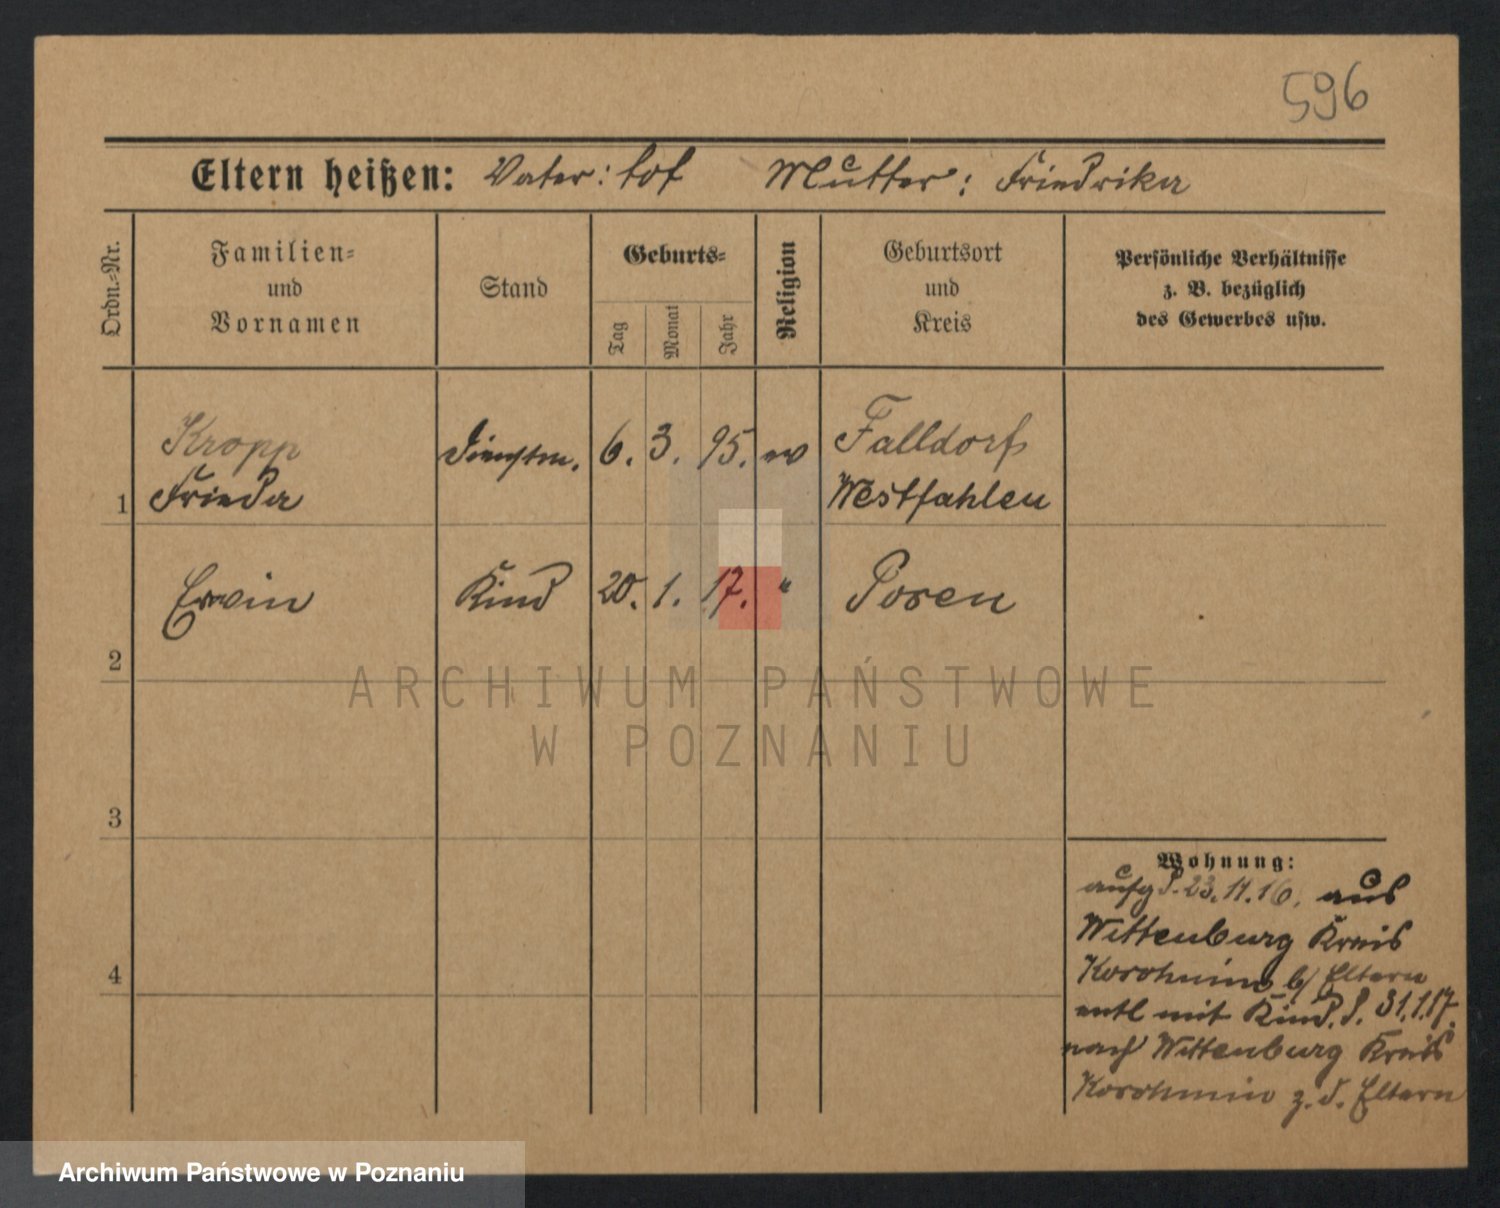 596
Eltern heißen: Vater: tot Mutter: Friedrika
Ordn.=Nr.
Familien=
und
Vornamen
Stand
Geburts=
Tag
Monat
Jahr
Religion
Geburtsort
und
Kreis
Persönliche Verhältnisse
z. B. bezüglich
des Gewerbes usw.
Kropp
Frieda
1
Dienstm.
6. 3. 95. ev
Falldorf
Westfahlen
Erwin
2
Kind
20. 1. 17. "
Posen
ARCHIWUM PAŃSTWOWE
W POZNANIU
3
4
Wohnung:
23.11.16. aus
Wittenburg Kreis
b/ Eltern
entl mit Kind. 31.1.17.
nach Wittenburg Kreis
z. d. Eltern
Archiwum Państwowe w Poznaniu